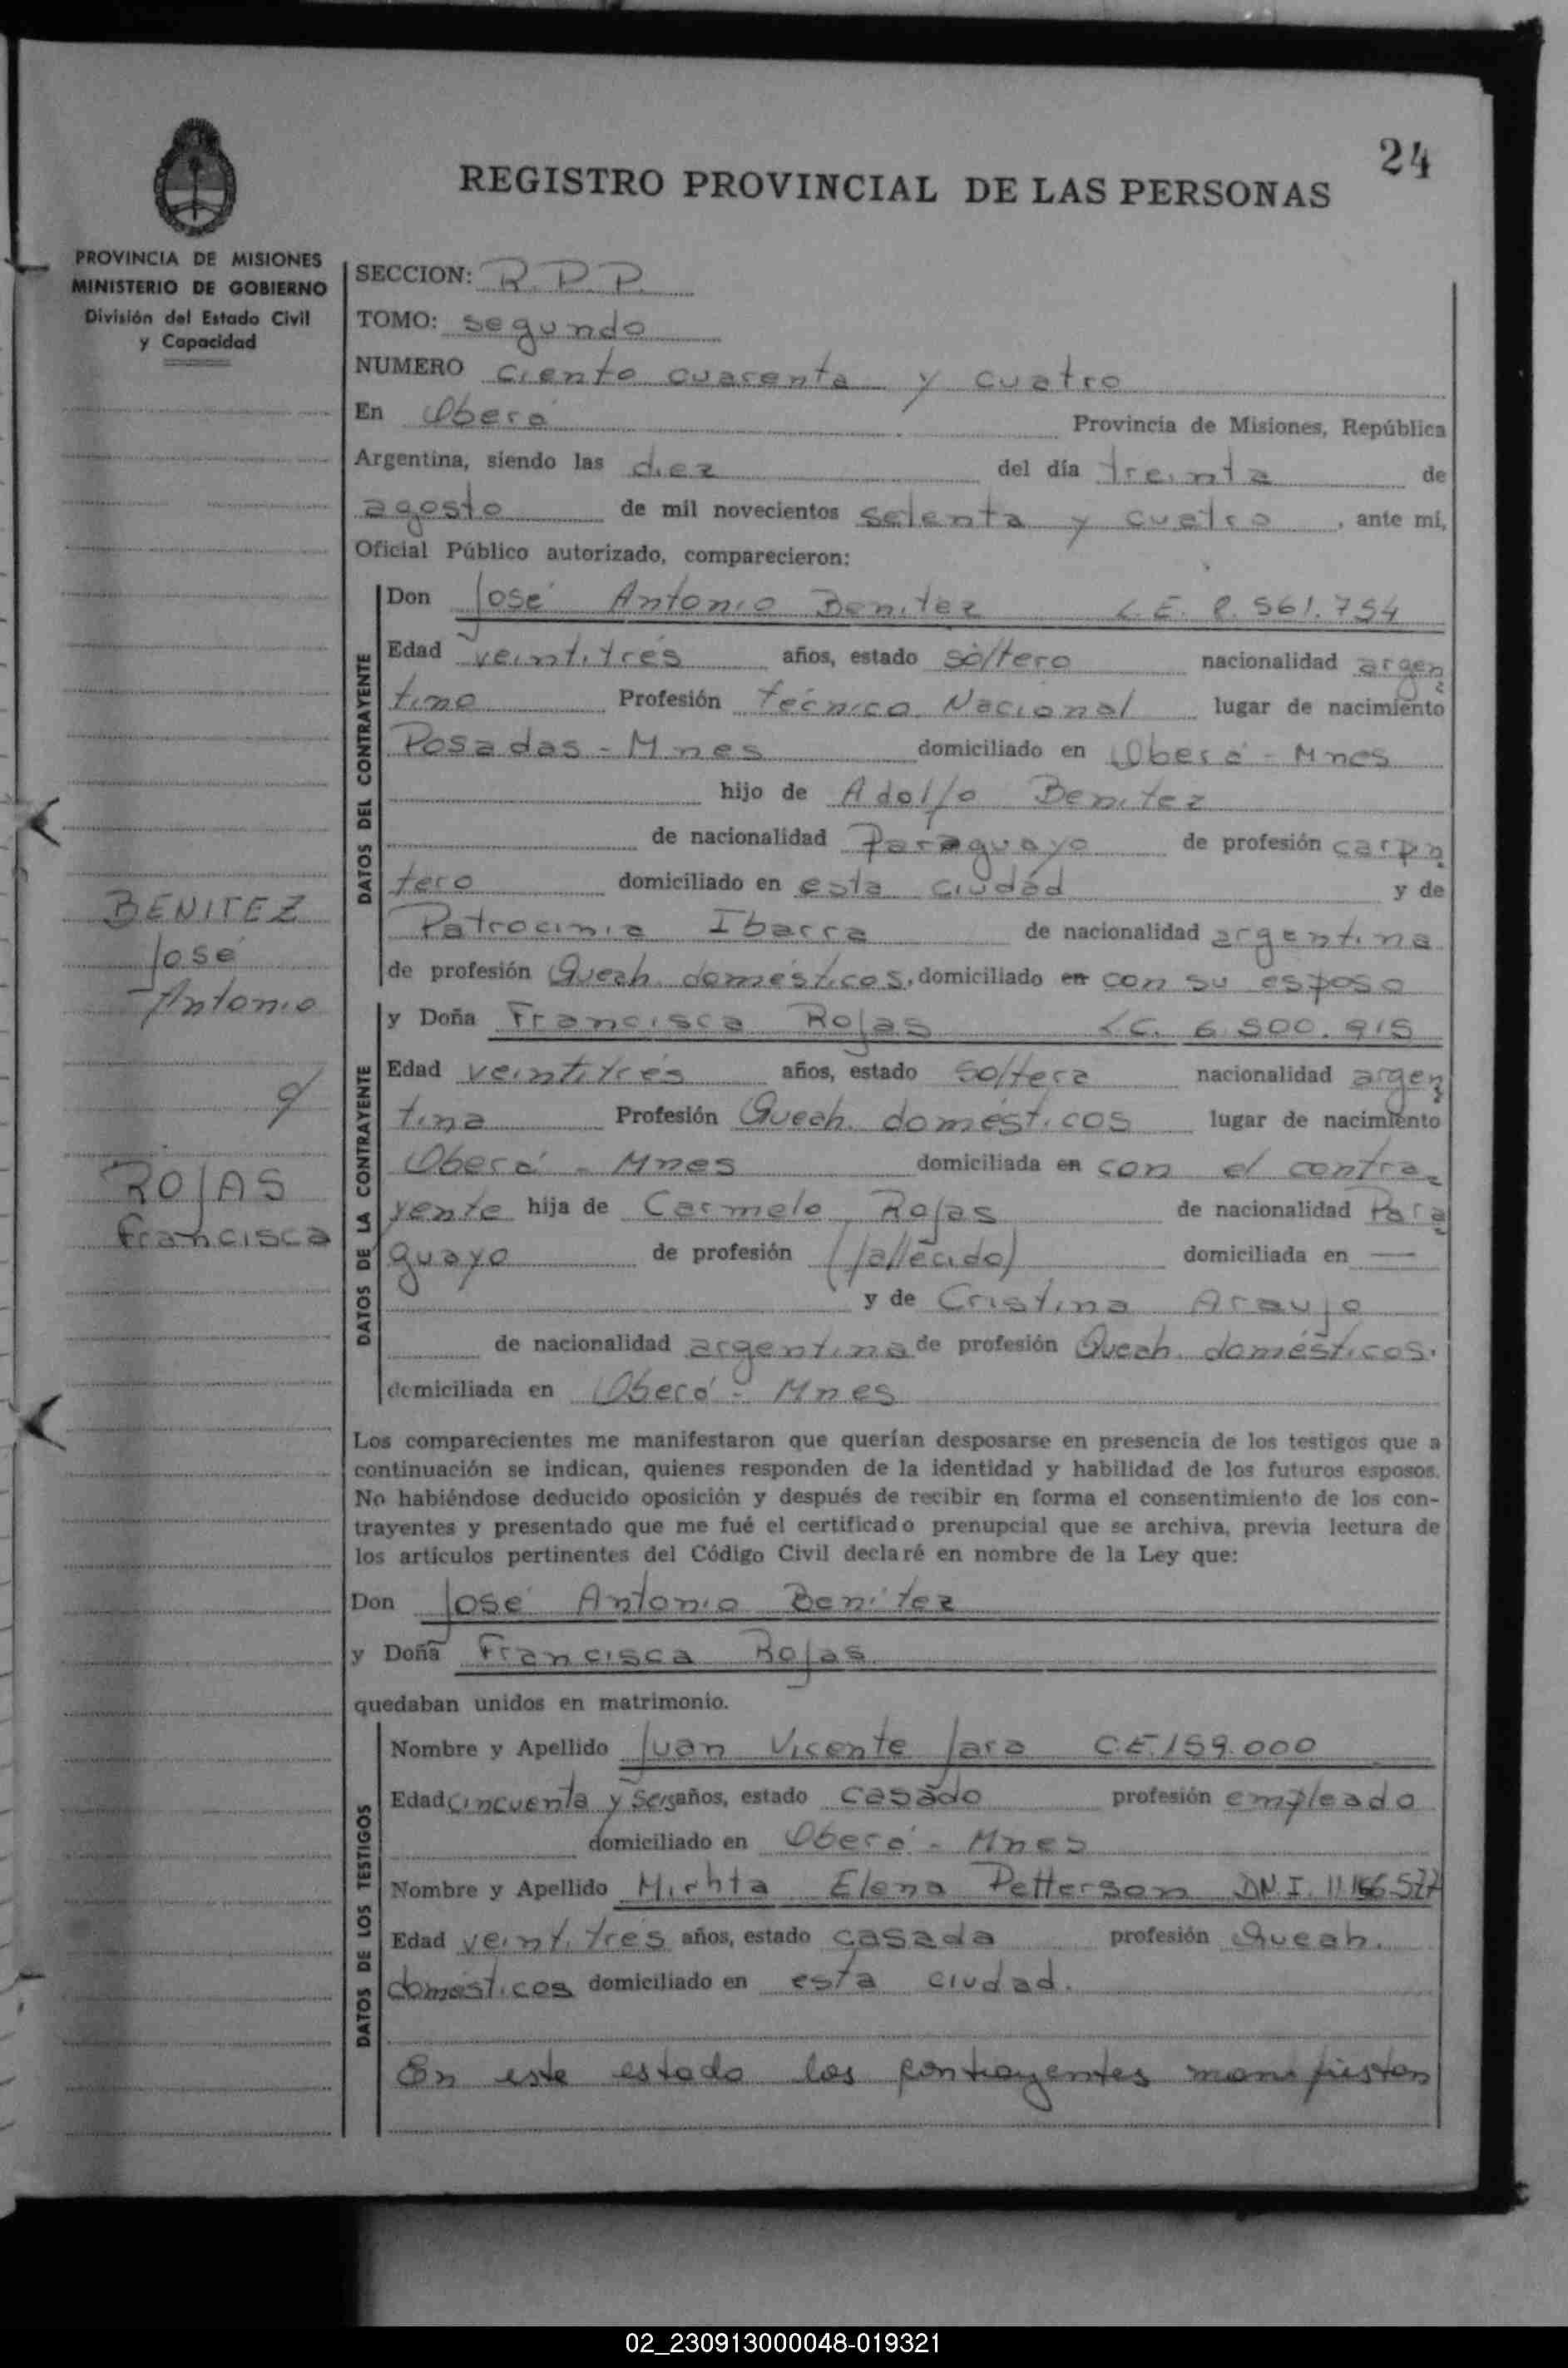 24
REGISTRO PROVINCIAL DE LAS PERSONAS
PROVINCIA DE MISIONES
MINISTERIO DE GOBIERNO
División del Estado Civil
y Capacidad
SECCION: R.P.P.
TOMO: segundo
NUMERO ciento cuarenta y cuatro
En Oberá Provincia de Misiones, República
Argentina, siendo las diez del día treinta de
agosto de mil novecientos setenta y cuatro, ante mí,
Oficial Público autorizado, comparecieron:
DATOS DEL CONTRAYENTE
Don José Antonio Benitez L.E. 8.561.754
Edad veintitrés años, estado soltero nacionalidad argen
tino Profesión técnico Nacional lugar de nacimiento
Posadas - Mnes domiciliado en Oberá - Mnes
hijo de Adolfo Benitez
de nacionalidad Paraguayo de profesión carpn
tero domiciliado en esta ciudad y de
Patrocinia Ibarra de nacionalidad argentina
de profesión Queah. domésticos, domiciliado en con su esposo
BENITEZ
José
Antonio
c/
ROJAS
Francisca
DATOS DE LA CONTRAYENTE
y Doña Francisca Rojas L.C. 6.500.915
Edad veintitrés años, estado soltera nacionalidad argen
tina Profesión Queah. domésticos lugar de nacimiento
Oberá - Mnes domiciliada en con el contra
yente hija de Carmelo Rojas de nacionalidad Para
guayo de profesión (fallecido) domiciliada en —
y de Cristina Araujo
de nacionalidad argentina de profesión Queah. domésticos.
domiciliada en Oberá - Mnes
Los comparecientes me manifestaron que querían desposarse en presencia de los testigos que a
continuación se indican, quienes responden de la identidad y habilidad de los futuros esposos.
No habiéndose deducido oposición y después de recibir en forma el consentimiento de los con-
trayentes y presentado que me fué el certificado prenupcial que se archiva, previa lectura de
los artículos pertinentes del Código Civil declaré en nombre de la Ley que:
Don José Antonio Benitez
y Doña Francisca Rojas
quedaban unidos en matrimonio.
DATOS DE LOS TESTIGOS
Nombre y Apellido Juan Vicente Jara C.E. 159.000
Edad cincuenta y seis años, estado casado profesión empleado
domiciliado en Oberá - Mnes
Nombre y Apellido Mirhta Elena Petterson D.N.I. 11.166.577
Edad veintitrés años, estado casada profesión Queah.
domésticos domiciliado en esta ciudad.
En este estado los contrayentes manifiestan
02_230913000048-019321